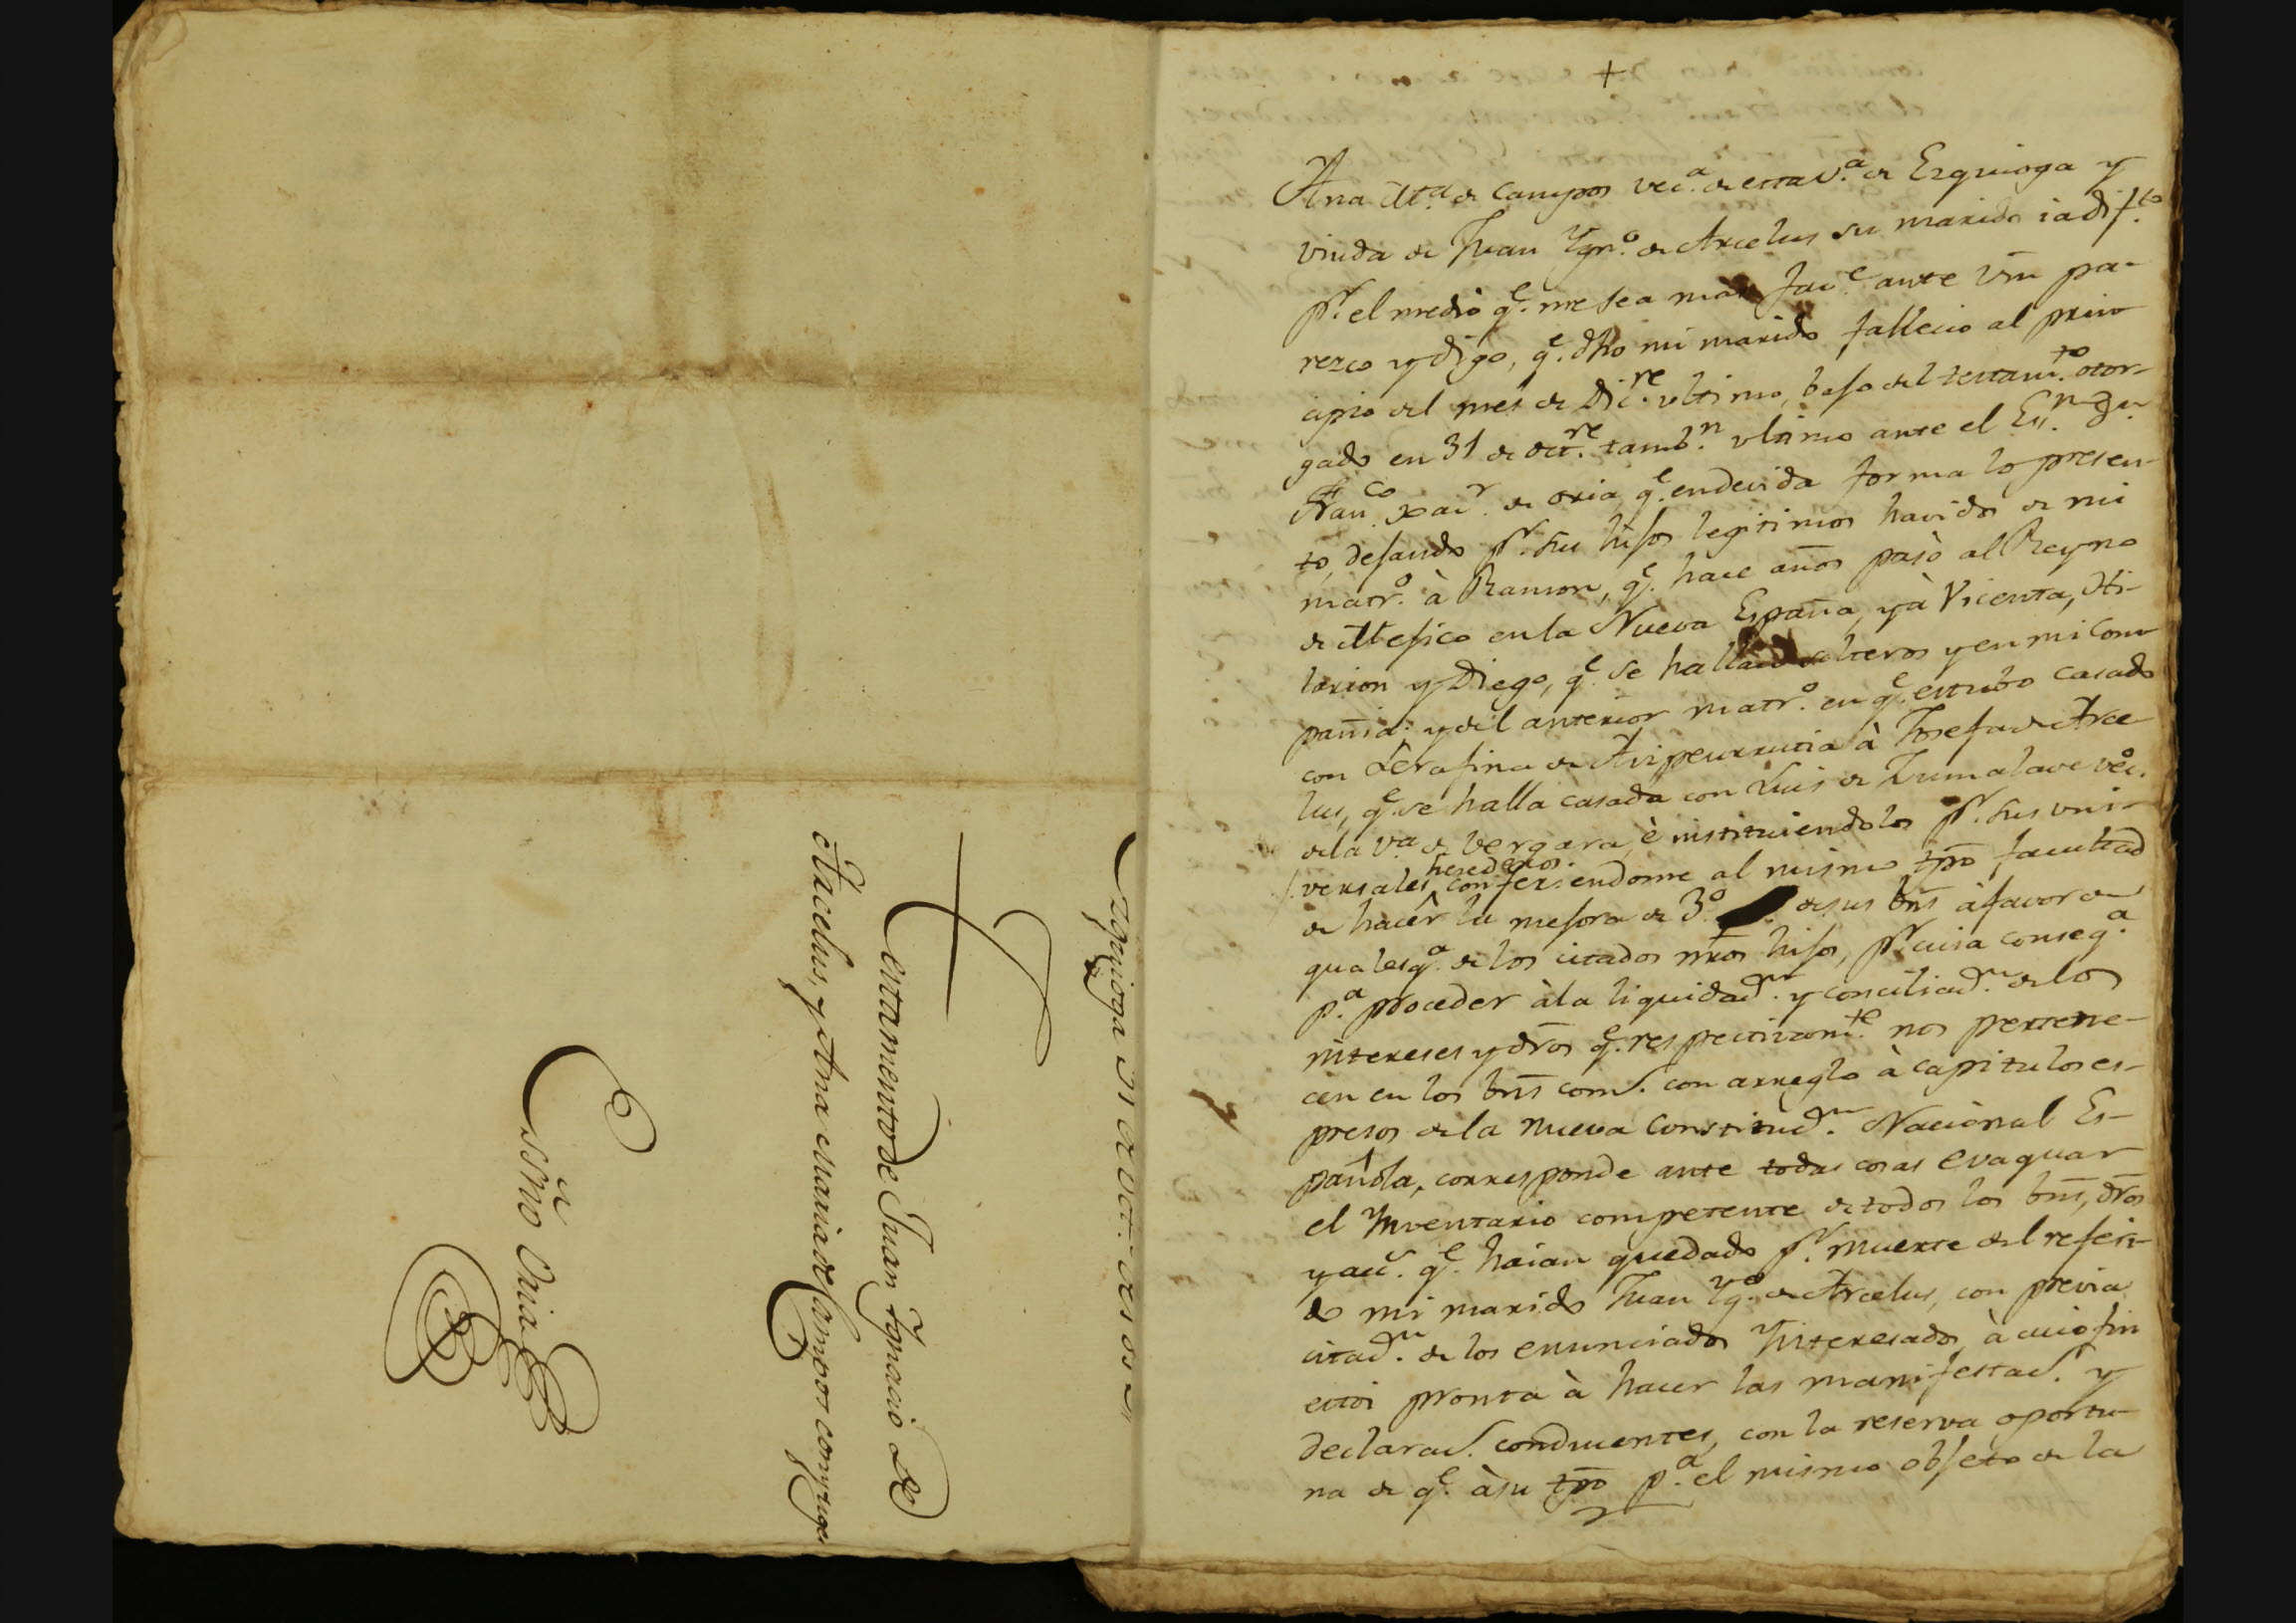 Ezquioga 31 de oct.
Testamento de Juan Ygnacio de
Arcelus, y Ana Maria de Campos conyuges
Essno Oria
+
Ana Ma. de Campos veca. de esta Va. de Ezquioga y
viuda de Juan Ygno. de Arcelus su marido ia difto.
pr. el medio qe. me sea mas face. ante Vm pa-
rezco y digo, qe. dho mi marido fallecio al prin
cipio del mes de Dicre. ultimo, bajo del testamto. otor-
gado en 31 de octre. tambn. ultimo ante el Esno. Dn.
Franco. Xavr. de Oria qe. en devida forma lo presen-
to, dejando pr. sus hijos legitimos havidos de mi
matro. à Ramon, qe. hace años pasò al Reyno
de Mejico en la Nueva España, y à Vicenta, Hi-
larion y Diego, qe. se hallan solteros y en mi com
pañia; y del anterior matro. en qe. estubo casado
con Serafina de Aizpeurrutia à Josefa de Arce-
lus, qe. se halla casada con Luis de Zumalave veco.
de la Va. de Vergara, è instituiendolos pr. sus uni-
versales herederos. confiriendome al mismo tpo facultad
de hacer la mejora de 3o. de sus bns à favor de
qualesqa. de los citados nros hijos, pr. cuia conseqa.
pa. proceder à la liquidacn. y conciliacn. de los
intereses y dros qe. respectivamte. nos pertene-
cen en los bns coms. con arreglo à capitulos es-
presos de la nueva Constitucn. Nacional Es-
pañola, corresponde ante todas cosas evaquar
el Ynventario competente de todos los bns, dros
y acc. qe. haian quedado pr. muerte del referi-
do mi marido Juan Ygo. de Arcelus, con previa
citacn. de los enunciados Ynteresados, à cuio fin
estoi pronta à hacer las manifestac. y
declarac. conducentes, con la reserva oportu-
na de qe. à su tpo pa. el mismo objeto de la